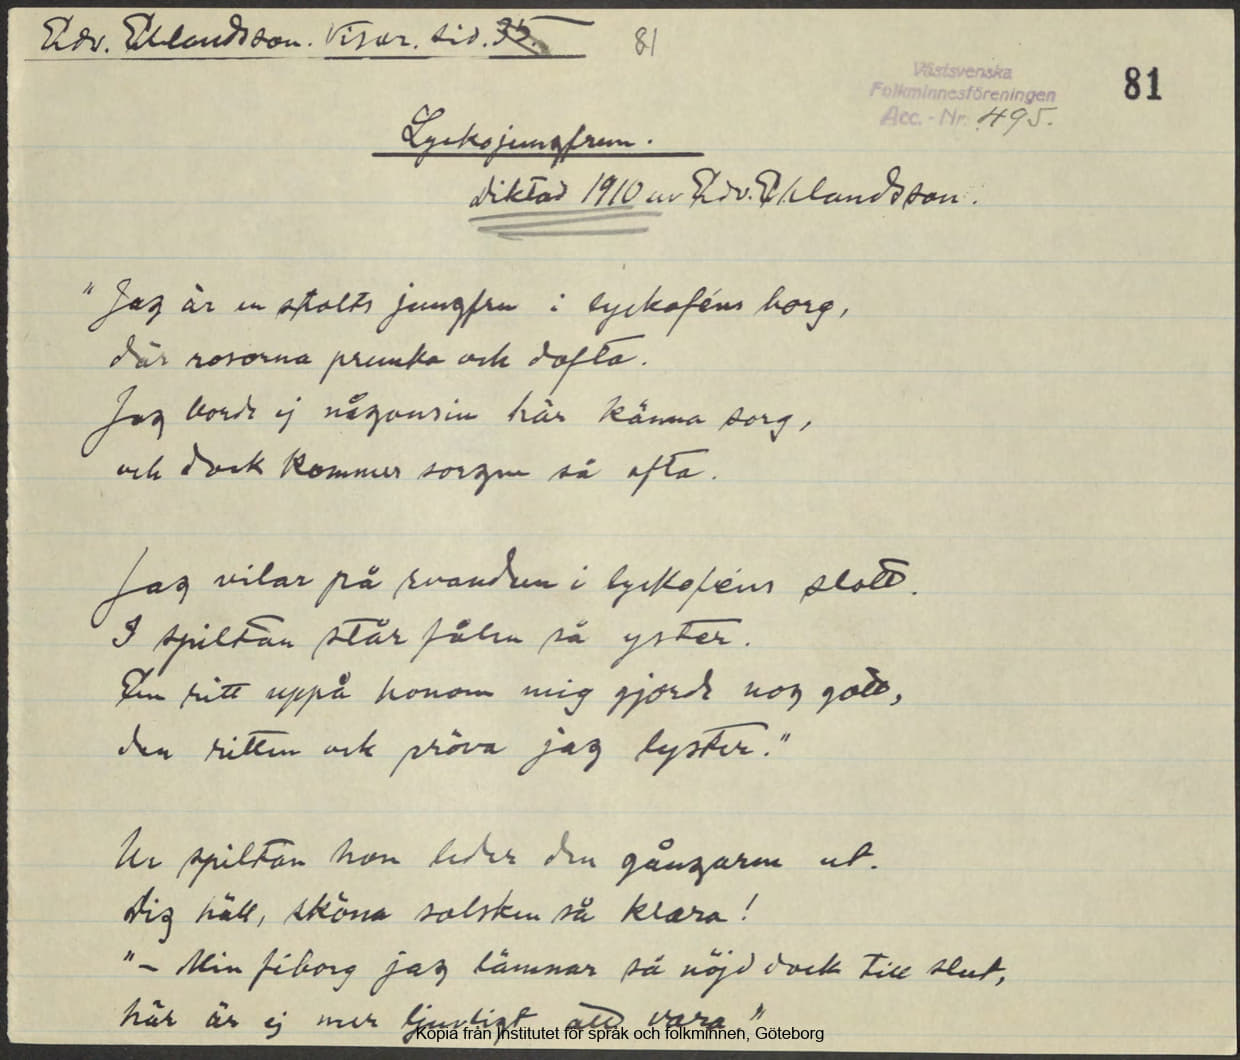 Edv. Ehlandsson. Visor. sid. 35.
81
Västsvenska
Folkminnesföreningen
Acc. - Nr. 495.
81
Lyckojungfrun.
diktad 1910 av Edv. Ehlandsson.
"Jag är en stolts jungfru i lyckoféns borg,
där rosorna prunka och dofta.
Jag borde ej någonsin här känna sorg,
och dock kommer sorgen så ofta.
Jag vilar på svandun i lyckoféns slott.
I spiltan står fålen så yster.
En ritt uppå honom mig gjorde nog gott,
den ritten ock pröva jag lyster."
Ur spiltan hon leder den gångaren ut.
Dig häll, sköna solsken så klara!
"– Min féborg jag lämnar så nöjd dock till slut,
här är ej mer ljuvligt att vara"
Kopia från Institutet för språk och folkminnen, Göteborg